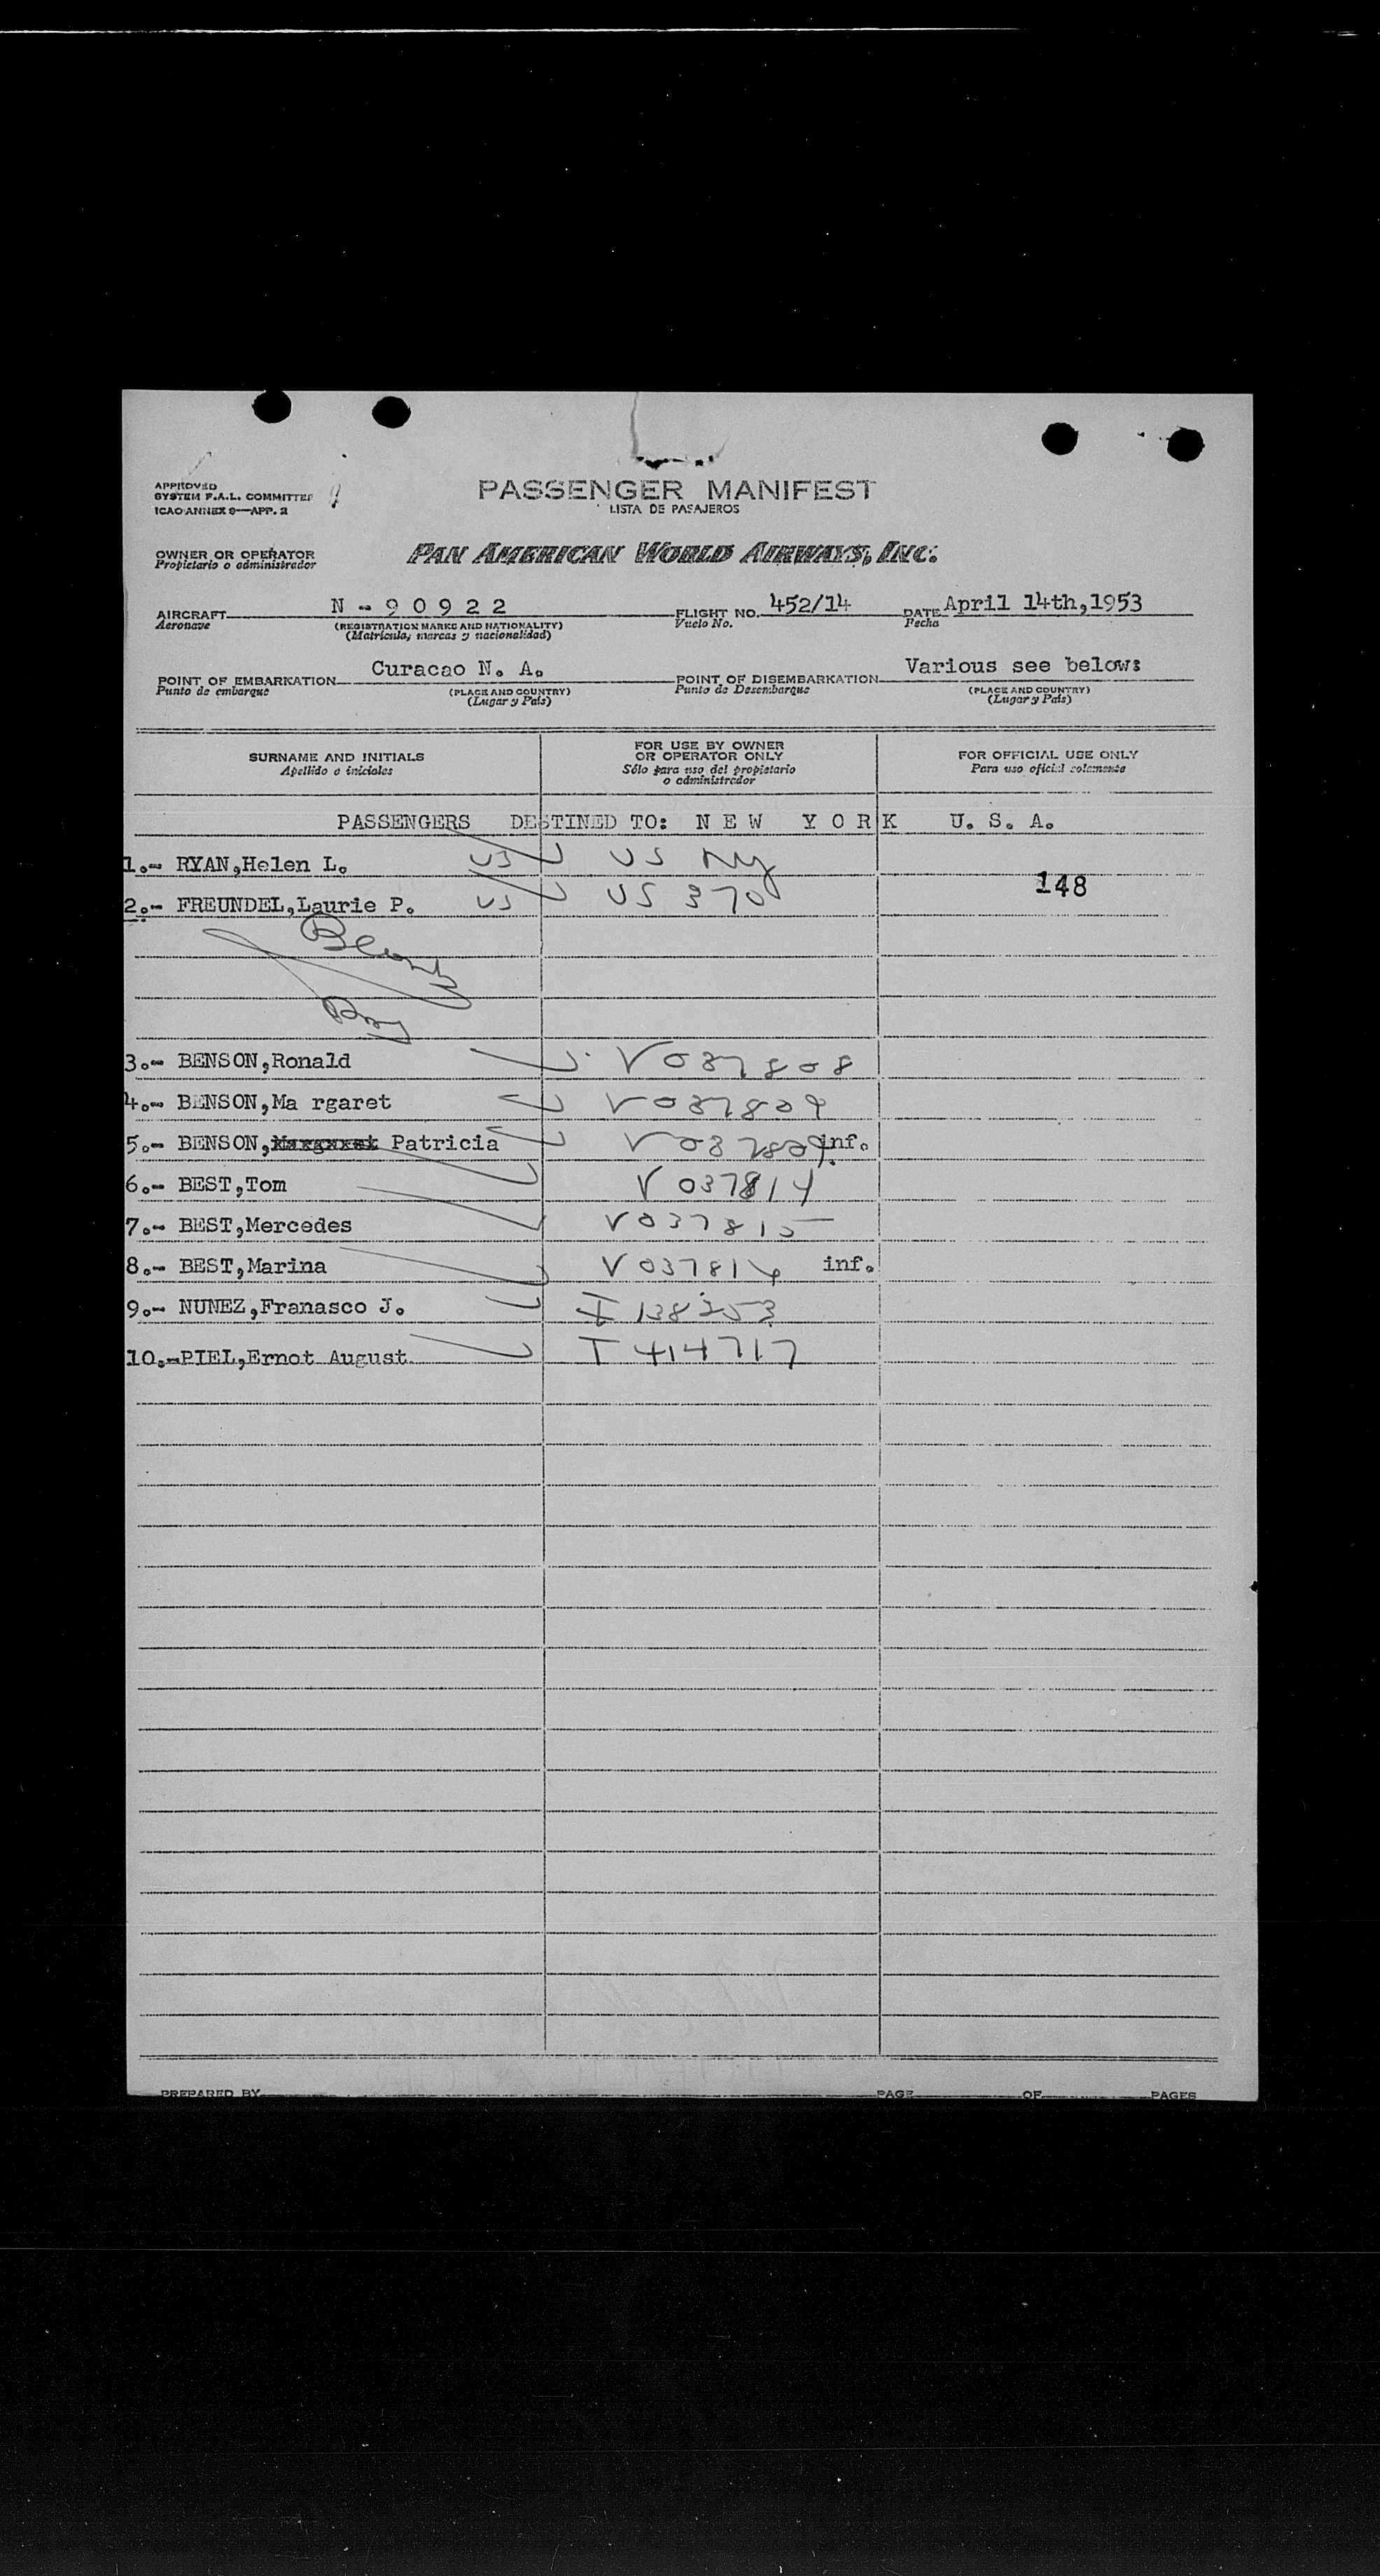 APPROVED
SYSTEM F.A.L. COMMITTEE
ICAO ANNEX 9—APP. 2
PASSENGER MANIFEST
LISTA DE PASAJEROS
OWNER OR OPERATOR
Propietario o administrador
PAN AMERICAN WORLD AIRWAYS, INC.
AIRCRAFT N - 9 0 9 2 2 FLIGHT NO. 452/14 DATE April 14th,1953
Aeronave (REGISTRATION MARKS AND NATIONALITY) Vuelo No. Fecha
(Matricula, marcas y nacionalidad)
POINT OF EMBARKATION Curacao N. A. POINT OF DISEMBARKATION Various see below:
Punto de embarque (PLACE AND COUNTRY) Punto de Desembarque (PLACE AND COUNTRY)
(Lugar y País) (Lugar y País)
SURNAME AND INITIALS
Apellido e iniciales
FOR USE BY OWNER
OR OPERATOR ONLY
Sólo para uso del propietario
o administrador
FOR OFFICIAL USE ONLY
Para uso oficial solamente
PASSENGERS DESTINED TO: N E W Y O R K U. S. A.
1.- RYAN,Helen L. US US NY
148
2.- FREUNDEL,Laurie P. US US 370
3.- BENSON,Ronald V 037808
4.- BENSON,Ma rgaret V 037809
5.- BENSON, Patricia V 037809 inf.
6.- BEST,Tom V 037814
7.- BEST,Mercedes V 037815
8.- BEST,Marina V 037816 inf.
9.- NUNEZ,Franasco J. I 138253
10.-PIEL,Ernot August I 414717
PREPARED BY PAGE OF PAGES